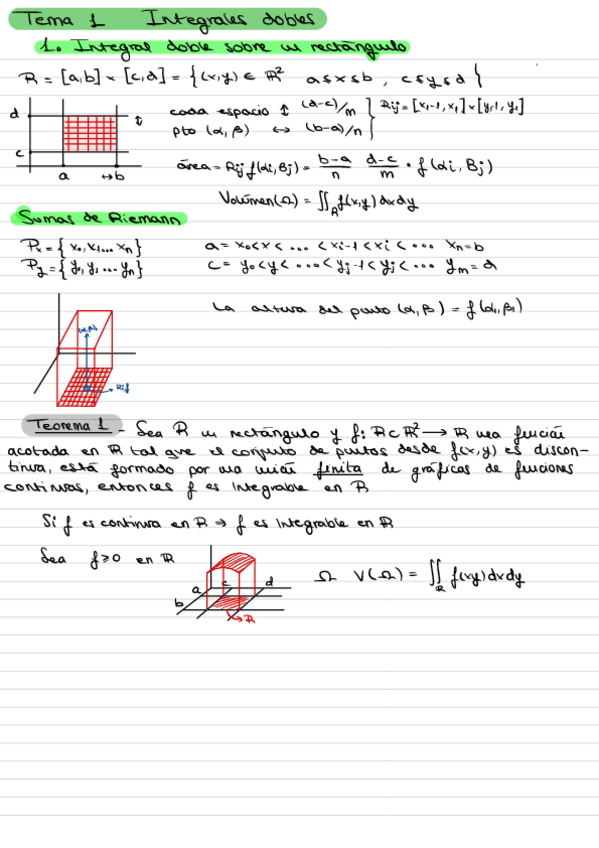 Tema 1 Integrales dobles
1. Integral doble sobre un rectángulo
R = [a,b] × [c,d] = { (x,y) ∈ ℝ² a ≤ x ≤ b , c ≤ y ≤ d }
d
c
a ↔ b
↕
cada espacio ↕ (d-c)/m } Rij = [xi-1, xi] × [yj-1, yj]
pto (α, β) ↔ (b-a)/n
área = Rij f(αi, βj) = b-a/n d-c/m · f(αi, βj)
Volúmen(Ω) = ∬R f(x,y) dxdy
Sumas de Riemann
Px = { x0, x1 ... xn }
a = x0 < x < ... < xi-1 < xi < ... xn = b
Py = { y0, y1 ... yn }
c = y0 < y < ... < yj-1 < yj < ... ym = d
La altura del punto (α, β) = f(αi, βj)
Rij
Teorema 1 - Sea R un rectángulo y f: R ⊂ ℝ² → ℝ una función
acotada en R tal que el conjunto de puntos desde f(x,y) es discon-
tinua, está formado por una unión finita de gráficas de funciones
continuas, entonces f es integrable en R
Si f es continua en R → f es integrable en R
Sea f ≥ 0 en R
a c d
b
R
Ω V(Ω) = ∬R f(xy) dxdy